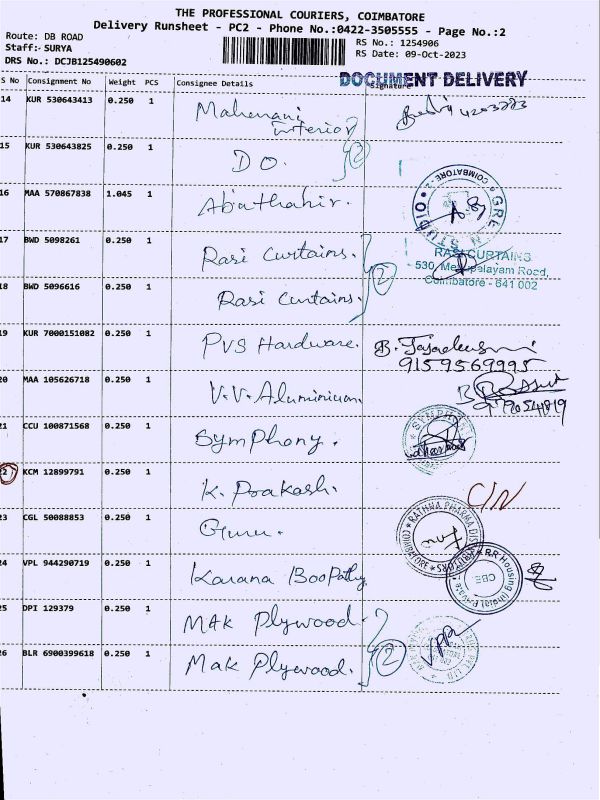 THE PROFESSIONAL COURIERS, COIMBATORE
Delivery Runsheet - PC2 - Phone No.:0422-3505555 - Page No.:2
Route: DB ROAD
Staff:- SURYA
DRS No.: DCJB125490602
RS No.: 1254906
RS Date: 09-Oct-2023
S No Consignment No Weight PCS Consignee Details Signature
DOCUMENT DELIVERY
14 KUR 530643413 0.250 1 Mahenani interior
15 KUR 530643825 0.250 1 DO. 2
16 MAA 570867838 1.045 1 Abathahir.
COIMBATORE - 2
17 BWD 5098261 0.250 1 Rasi Curtains.
RASI CURTAINS
530, Mettupalayam Road,
Coimbatore - 641 002
18 BWD 5096616 0.250 1 Rasi Curtains. 2
19 KUR 7000151082 0.250 1 PVS Hardware.
9159569995
20 MAA 105626718 0.250 1 V.V. Aluminium
21 CCU 100871568 0.250 1 Symphony.
SYMPHONY
22 KCM 12899791 0.250 1 K. Prakash. C/N
23 CGL 50088853 0.250 1 Guru.
RATHNA PHARMA DISTRIBUTORS COIMBATORE
24 VPL 944290719 0.250 1 Karana Boopathy
RR Housing (India) Private
CBE
25 DPI 129379 0.250 1 MAK Plywood.
26 BLR 6900399618 0.250 1 Mak Plywood. 2